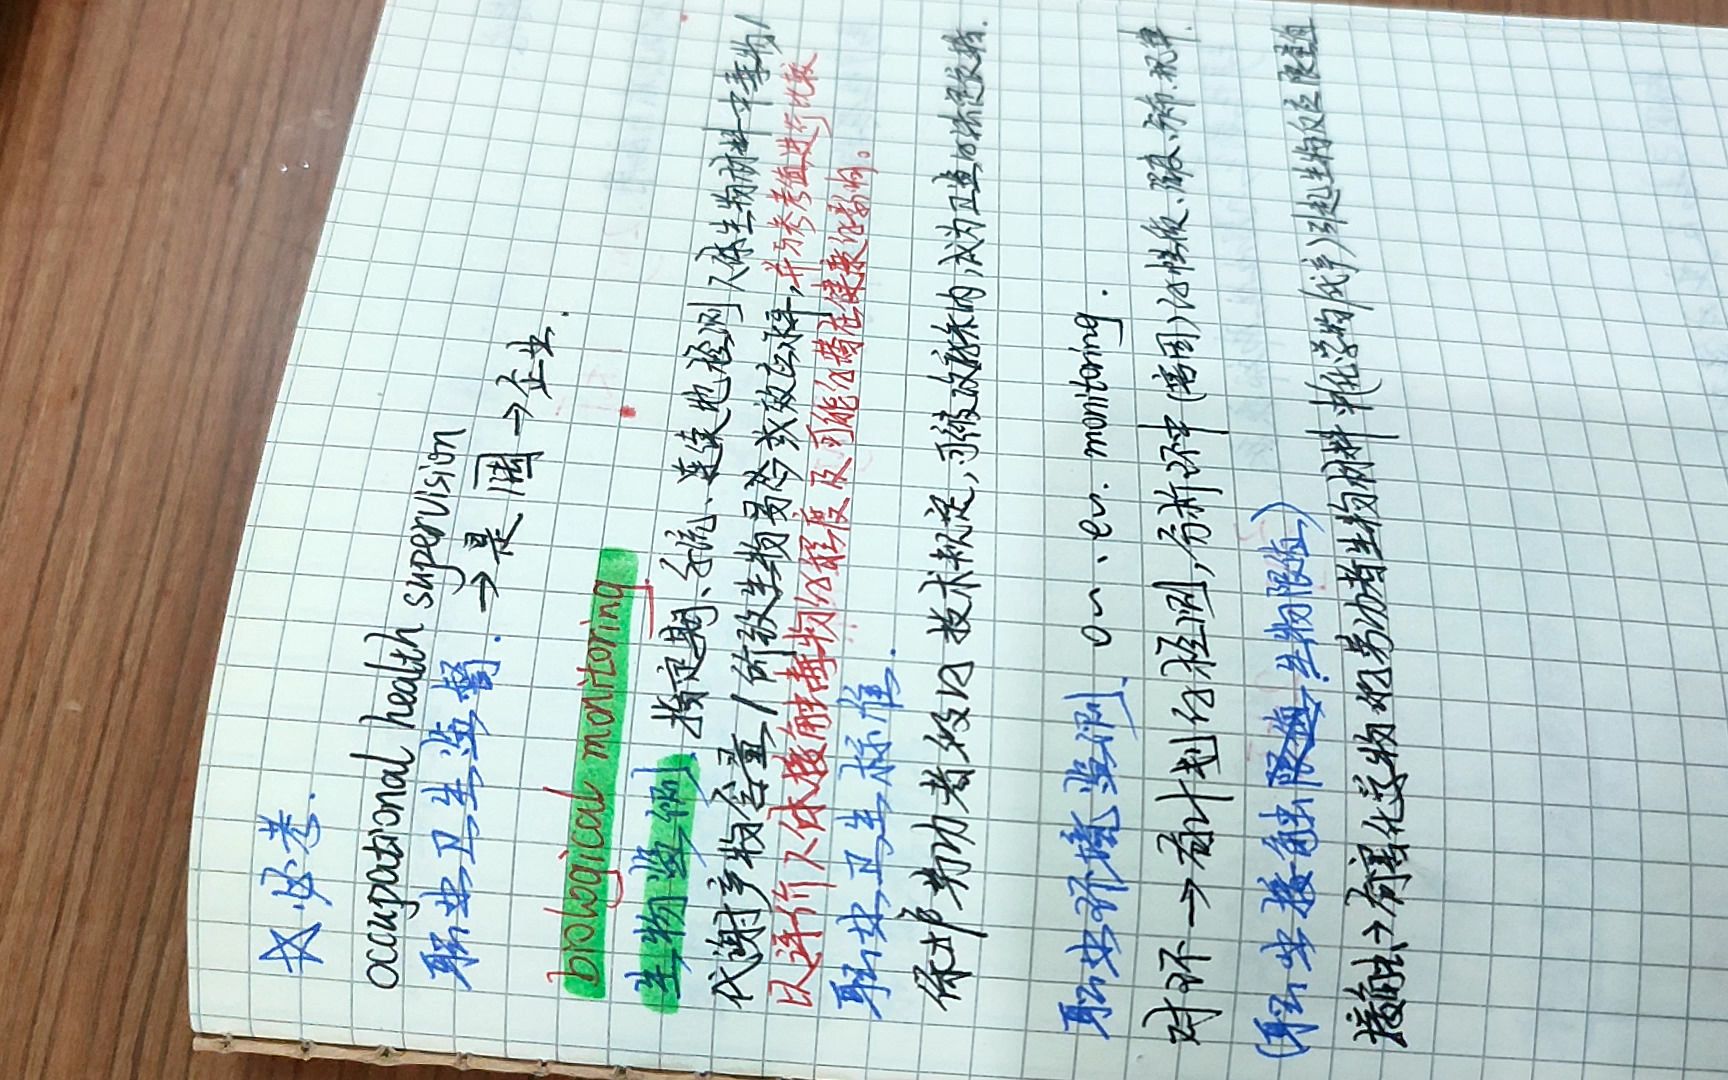 ☆必考.
occupational health supervision
职业卫生监督. →是国→企业.
biological monitoring
生物监测. 指定期、系统、连续地检测人体生物材料中毒物/
代谢产物含量/的致生物易感或效应水平,并与参考值进行比较
以评价人体接触毒物的程度及可能的潜在健康的影响。
职业卫生标准.
保护劳动者 技术规定,
职业环境监测. o~、en. monitoring.
对环→有计划的检测,分析环中(范围)的性质、强度、分布、规律
(职业接触限值 生物限值)
接触→有害化交物的劳动者生物材料中(化学物/代产)引起生物反应 限量值